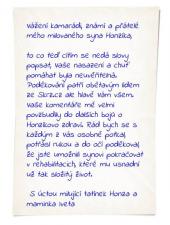 vážení kamarádi, známí a přátelé
mého milovaného syna Honzíka,
to co teď cítím se nedá slovy
popsat, vaše nasazení a chuť
pomáhat byla neuvěřitelná.
Poděkování patří obětavým lidem
ze Skrz.cz ale hlavě vám všem.
Vaše komentáře mě velmi
povzbudily do dalších bojů o
Honzíkovo zdraví. Rád bych se s
každým z vás osobně potkal,
potřásl rukou a do očí poděkoval,
že jste umožnili synovi pokračovat
v rehabilitacích, které mu usnadní
už tak složitý život.
S úctou milující tatínek Honza a
maminka Iveta